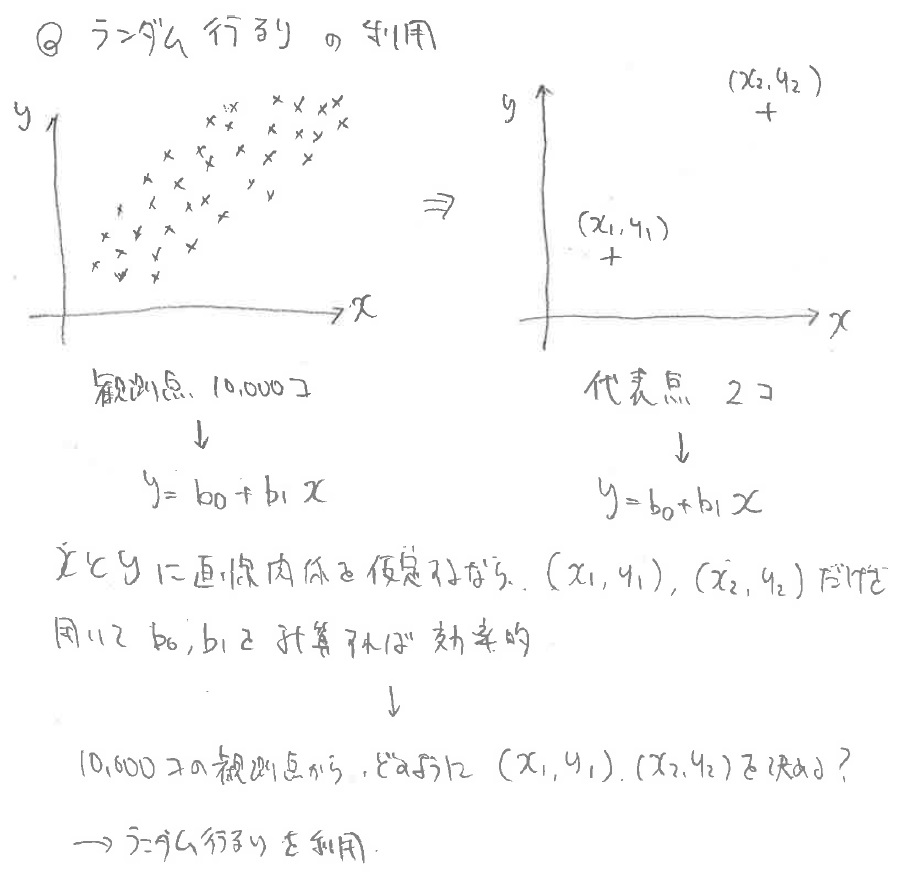 ◎ ランダム行るりの利用
y
x
⇒
y
(x₂, y₂)
(x₁, y₁)
x
観測点 10,000コ
↓
y = b₀ + b₁ x
代表点 2コ
↓
y = b₀ + b₁ x
xとyに直線関係を仮定するなら、(x₁, y₁), (x₂, y₂) だけを
用いて b₀, b₁を計算すれば効率的
↓
10,000コの観測点から、どのように (x₁, y₁), (x₂, y₂) を決める?
→ ランダム行るりを利用.